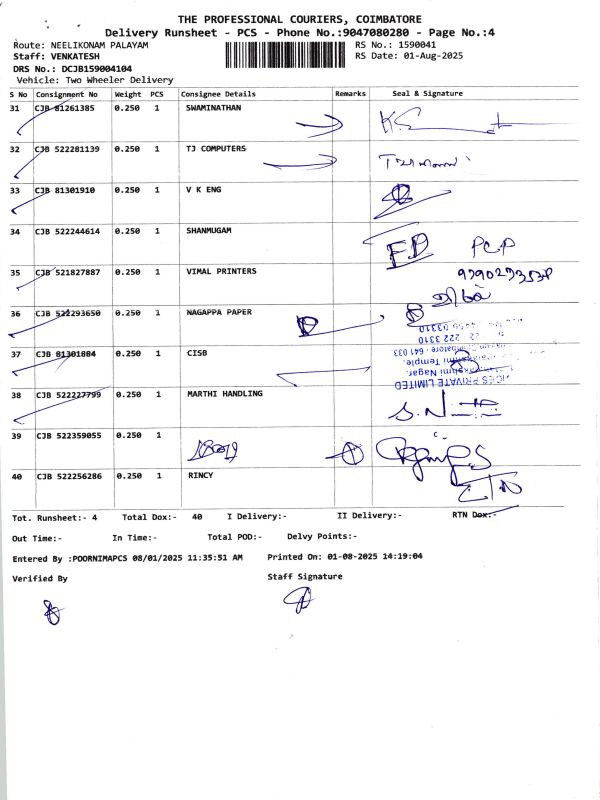 THE PROFESSIONAL COURIERS, COIMBATORE
Delivery Runsheet - PCS - Phone No.:9047080280 - Page No.:4
Route: NEELIKONAM PALAYAM RS No.: 1590041
Staff: VENKATESH RS Date: 01-Aug-2025
DRS No.: DCJB159004104
Vehicle: Two Wheeler Delivery
S No Consignment No Weight PCS Consignee Details Remarks Seal & Signature
31 CJB 81261385 0.250 1 SWAMINATHAN
32 CJB 522281139 0.250 1 TJ COMPUTERS
33 CJB 81301910 0.250 1 V K ENG
34 CJB 522244614 0.250 1 SHANMUGAM FD PCP
35 CJB 521827887 0.250 1 VIMAL PRINTERS
36 CJB 522293650 0.250 1 NAGAPPA PAPER
22 222 3310
641 033
Temple,
Nagar,
PRIVATE LIMITED
37 CJB 81301884 0.250 1 CISB
38 CJB 522227799 0.250 1 MARTHI HANDLING
39 CJB 522359055 0.250 1
40 CJB 522256286 0.250 1 RINCY
Tot. Runsheet:- 4 Total Dox:- 40 I Delivery:- II Delivery:- RTN Dox:-
Out Time:- In Time:- Total POD:- Delvy Points:-
Entered By :POORNIMAPCS 08/01/2025 11:35:51 AM Printed On: 01-08-2025 14:19:04
Verified By Staff Signature